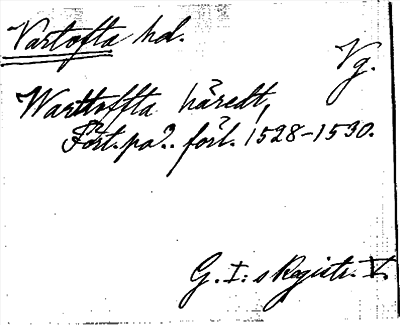 Vartofta hd.
Vg.
Warttoffta häredt,
Fört. på? . förl. 1528-1530.
G. I:s Registr. V.